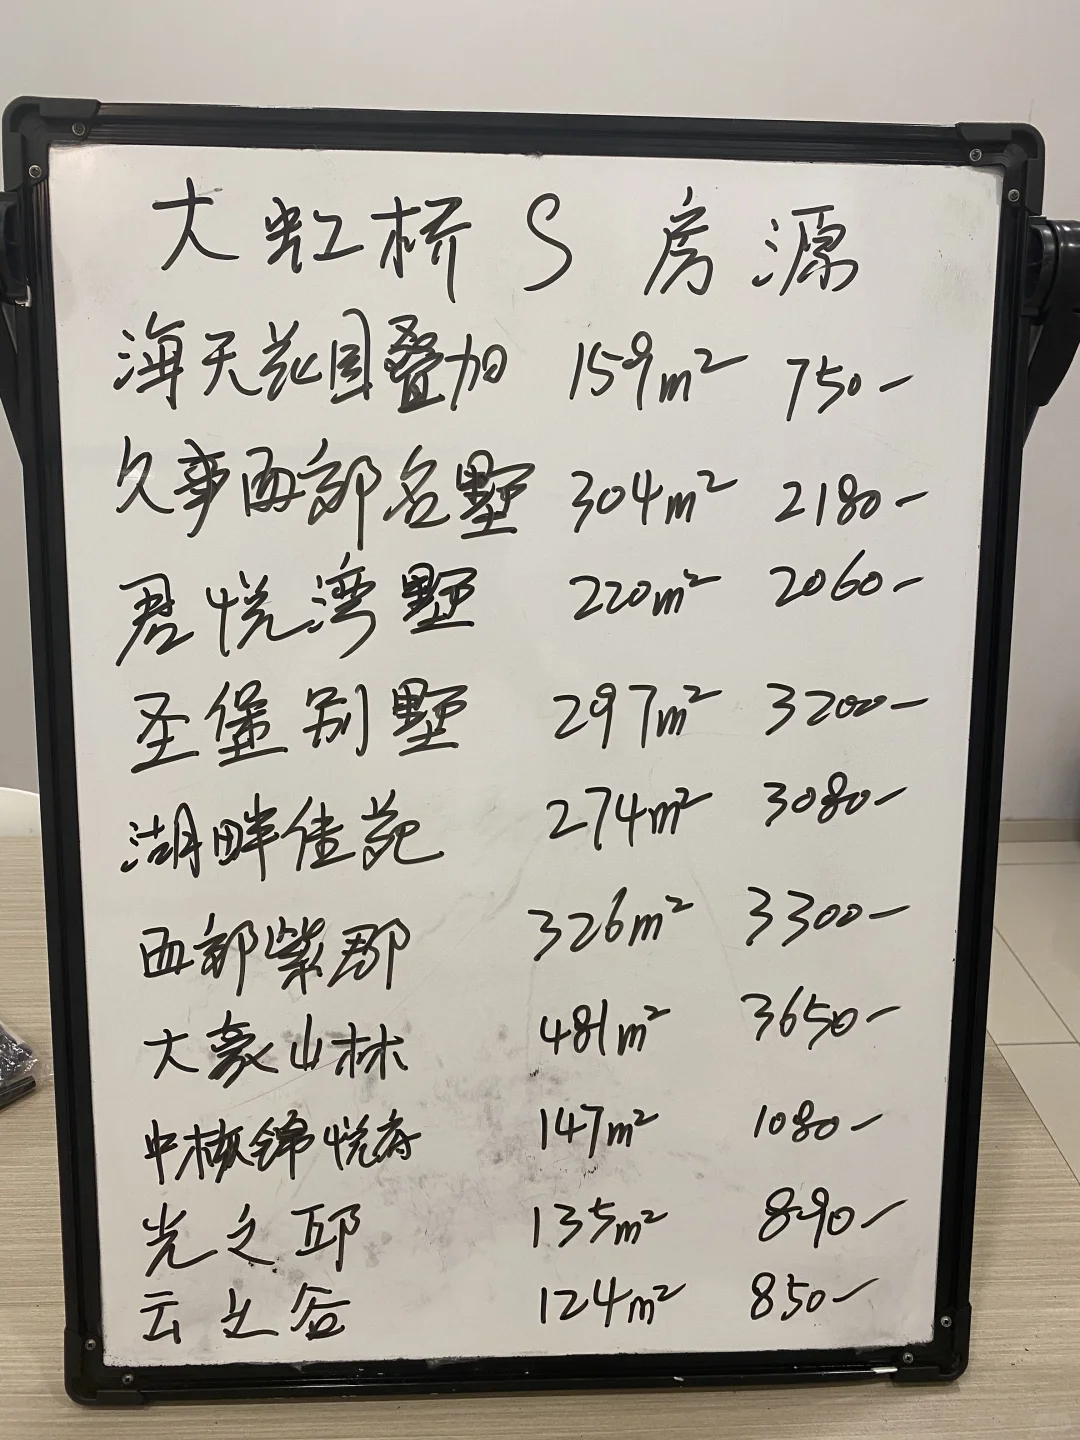 大虹桥 S 房源
海天花园叠加 159m² 750-
久事西郊名墅 304m² 2180-
君悦湾墅 220m² 2060-
圣堡别墅 297m² 3200-
湖畔佳苑 274m² 3080-
西郊紫郡 326m² 3300-
大豪山林 481m² 3650-
中核锦悦府 147m² 1080-
光之邱 135m² 890-
云之谷 124m² 850-